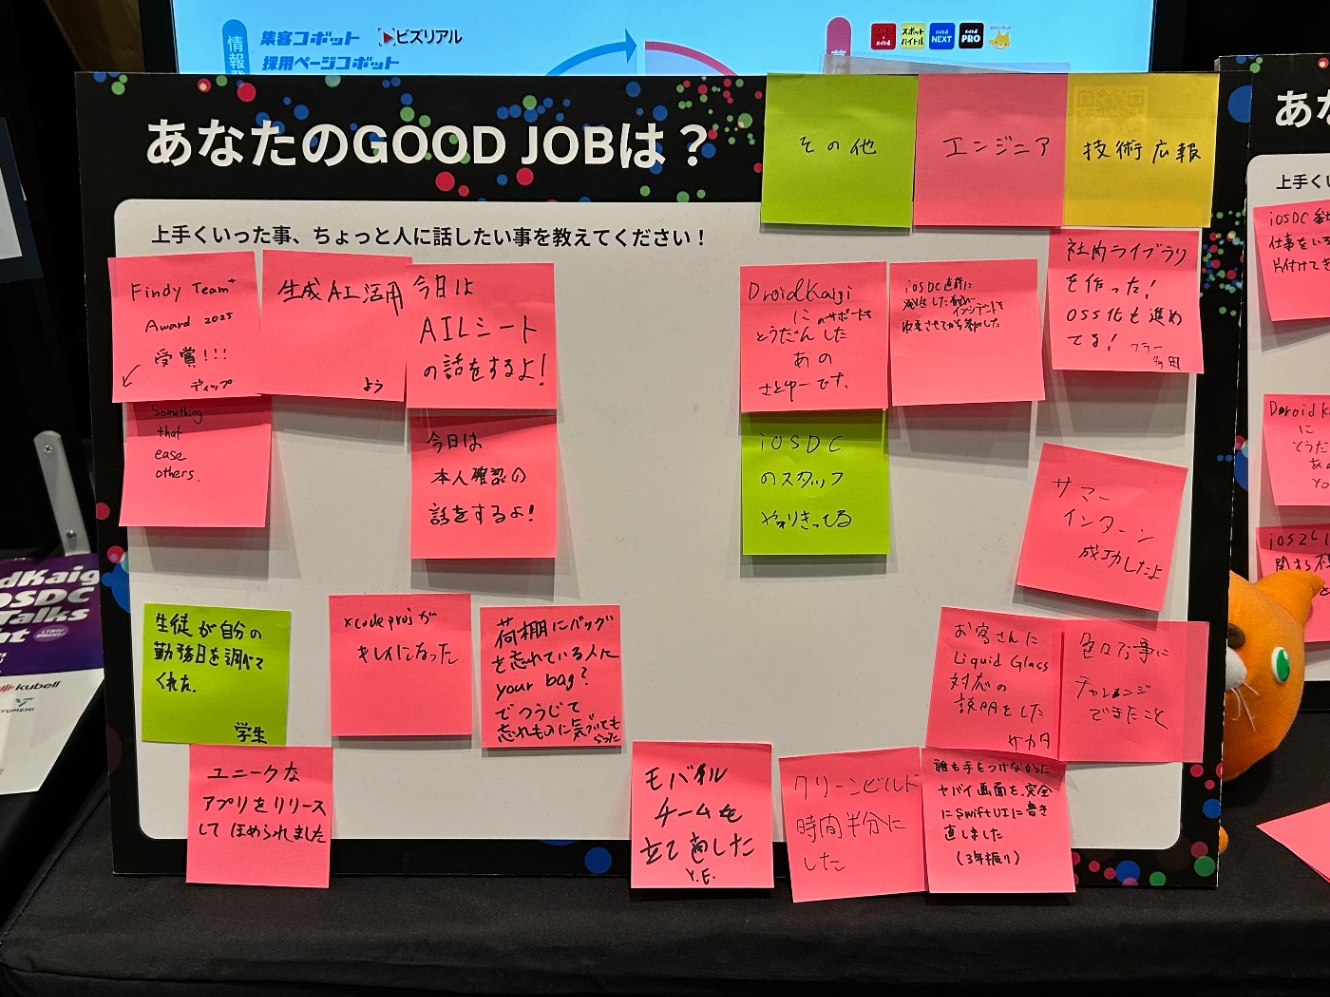 情報
集客コボット
ビズリアル
採用ページコボット
スポット
バイトル
NEXT
PRO
あなたのGOOD JOBは？
その他
エンジニア
技術広報
上手くいった事、ちょっと人に話したい事を教えてください！
Findy Team+
Award 2025
受賞!!!
ディップ
生成AI活用
よう
今日は
AILシート
の話をするよ!
Something
that
ease
others.
今日は
本人確認の
話をするよ!
DroidKaigi
に のサポートも
とうだんした
あの
さとゆーです。
iOSDC直前に
発生した
インシデントを
収束させてから参加した
社内ライブラリ
を作った!
OSS化も進め
てる!
フラー
iOSDC
のスタッフ
やりきってる
サマー
インターン
成功したよ
生徒が自分の
勤務日を調べて
くれた.
学生
xcodeprojが
キレイになった
荷棚にバッグ
を忘れている人に
your bag?
でつうじて
忘れものに気づいてもらった
お客さんに
Liquid Glass
対応の
説明をした
サカタ
色々な事に
チャレンジ
できたこと
ユニークな
アプリをリリース
して ほめられました
モバイル
チームを
立て直した
Y.E.
クリーンビルド
時間半分に
した
誰も手をつけなかった
ヤバイ画面を、完全
にSwiftUIに書き
直しました
(3年振り)
あな
上手くい
iOSDC
仕事をいろ
片付けてき
Droid K
に
とうだ
あの
iOS26
dKaig
OSDC
Talks
ht
kubell
YUMEMI